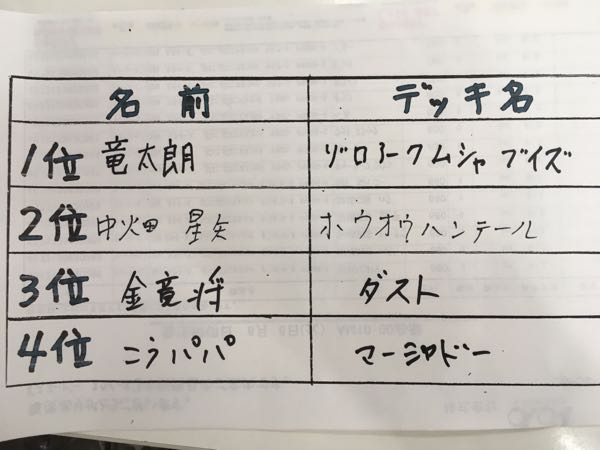 名前 デッキ名
1位 竜太朗 ゾロアークムシャ ブイズ
2位 中畑 星矢 ホウオウハンテール
3位 金竜将 ダスト
4位 こうパパ マーシャドー